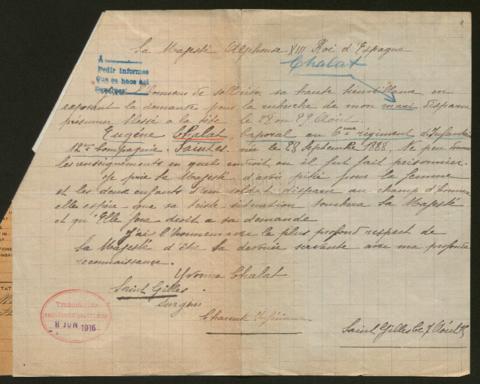 Sa Majesté Alphonse XIII Roi d'Espagne
Chalat
A
Pedir informes
l'honneur de sa haute bienveillance en
exposant la demande pour la recherche de mon mari disparu
prisonnier blessé à la tête le 28 ou 29 Août.
Eugène Chalat Caporal au 6ème régiment d'infanterie
12ème Compagnie Saintes né le 28 Septembre 1888.
les renseignements en quels endroit où il fut fait prisonnier.
Je prie sa Majesté d'avoir pitié pour la femme
et les deux enfants d'un soldat disparu au champ d'honneur
elle espère que sa triste situation touchera Sa Majesté
et qu'Elle fera droit à sa demande
J'ai l'honneur avec le plus profond respect de
Sa Majesté d'être la dévouée servante avec ma profonde
reconnaissance.
Yvonne Chalat
Saint Gilles
Surgères
Charente Inférieure
8 JUN 1916
Saint Gilles le Août